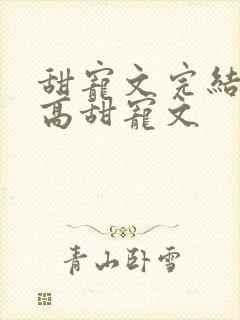 甜寵文完結
高甜寵文
青山卧雪